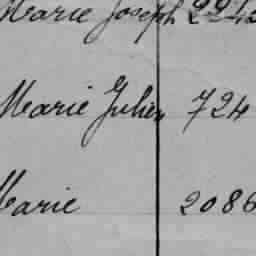 Marie Joseph
Marie Julien 724
Marie 2086